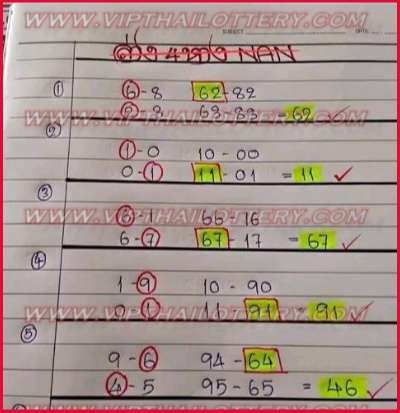 WWW.VIPTHAILOTTERY.COM
SUBJECT DATE
ล่าง NAN
① 6-8 62-82
2-3 63-83 =62 ✓
② WWW.VIPTHAILOTTERY.COM
1-0 10-00
0-1 11-01 =11 ✓
③
WWW.VIPTHAILOTTERY.COM
6-1 66-16
6-7 67-17 =67 ✓
④ 1-9 10-90
0-1 11-91 =91 ✓
WWW.VIPTHAILOTTERY.COM
⑤
9-6 94-64
4-5 95-65 =46 ✓
WWW.VIPTHAILOTTERY.COM